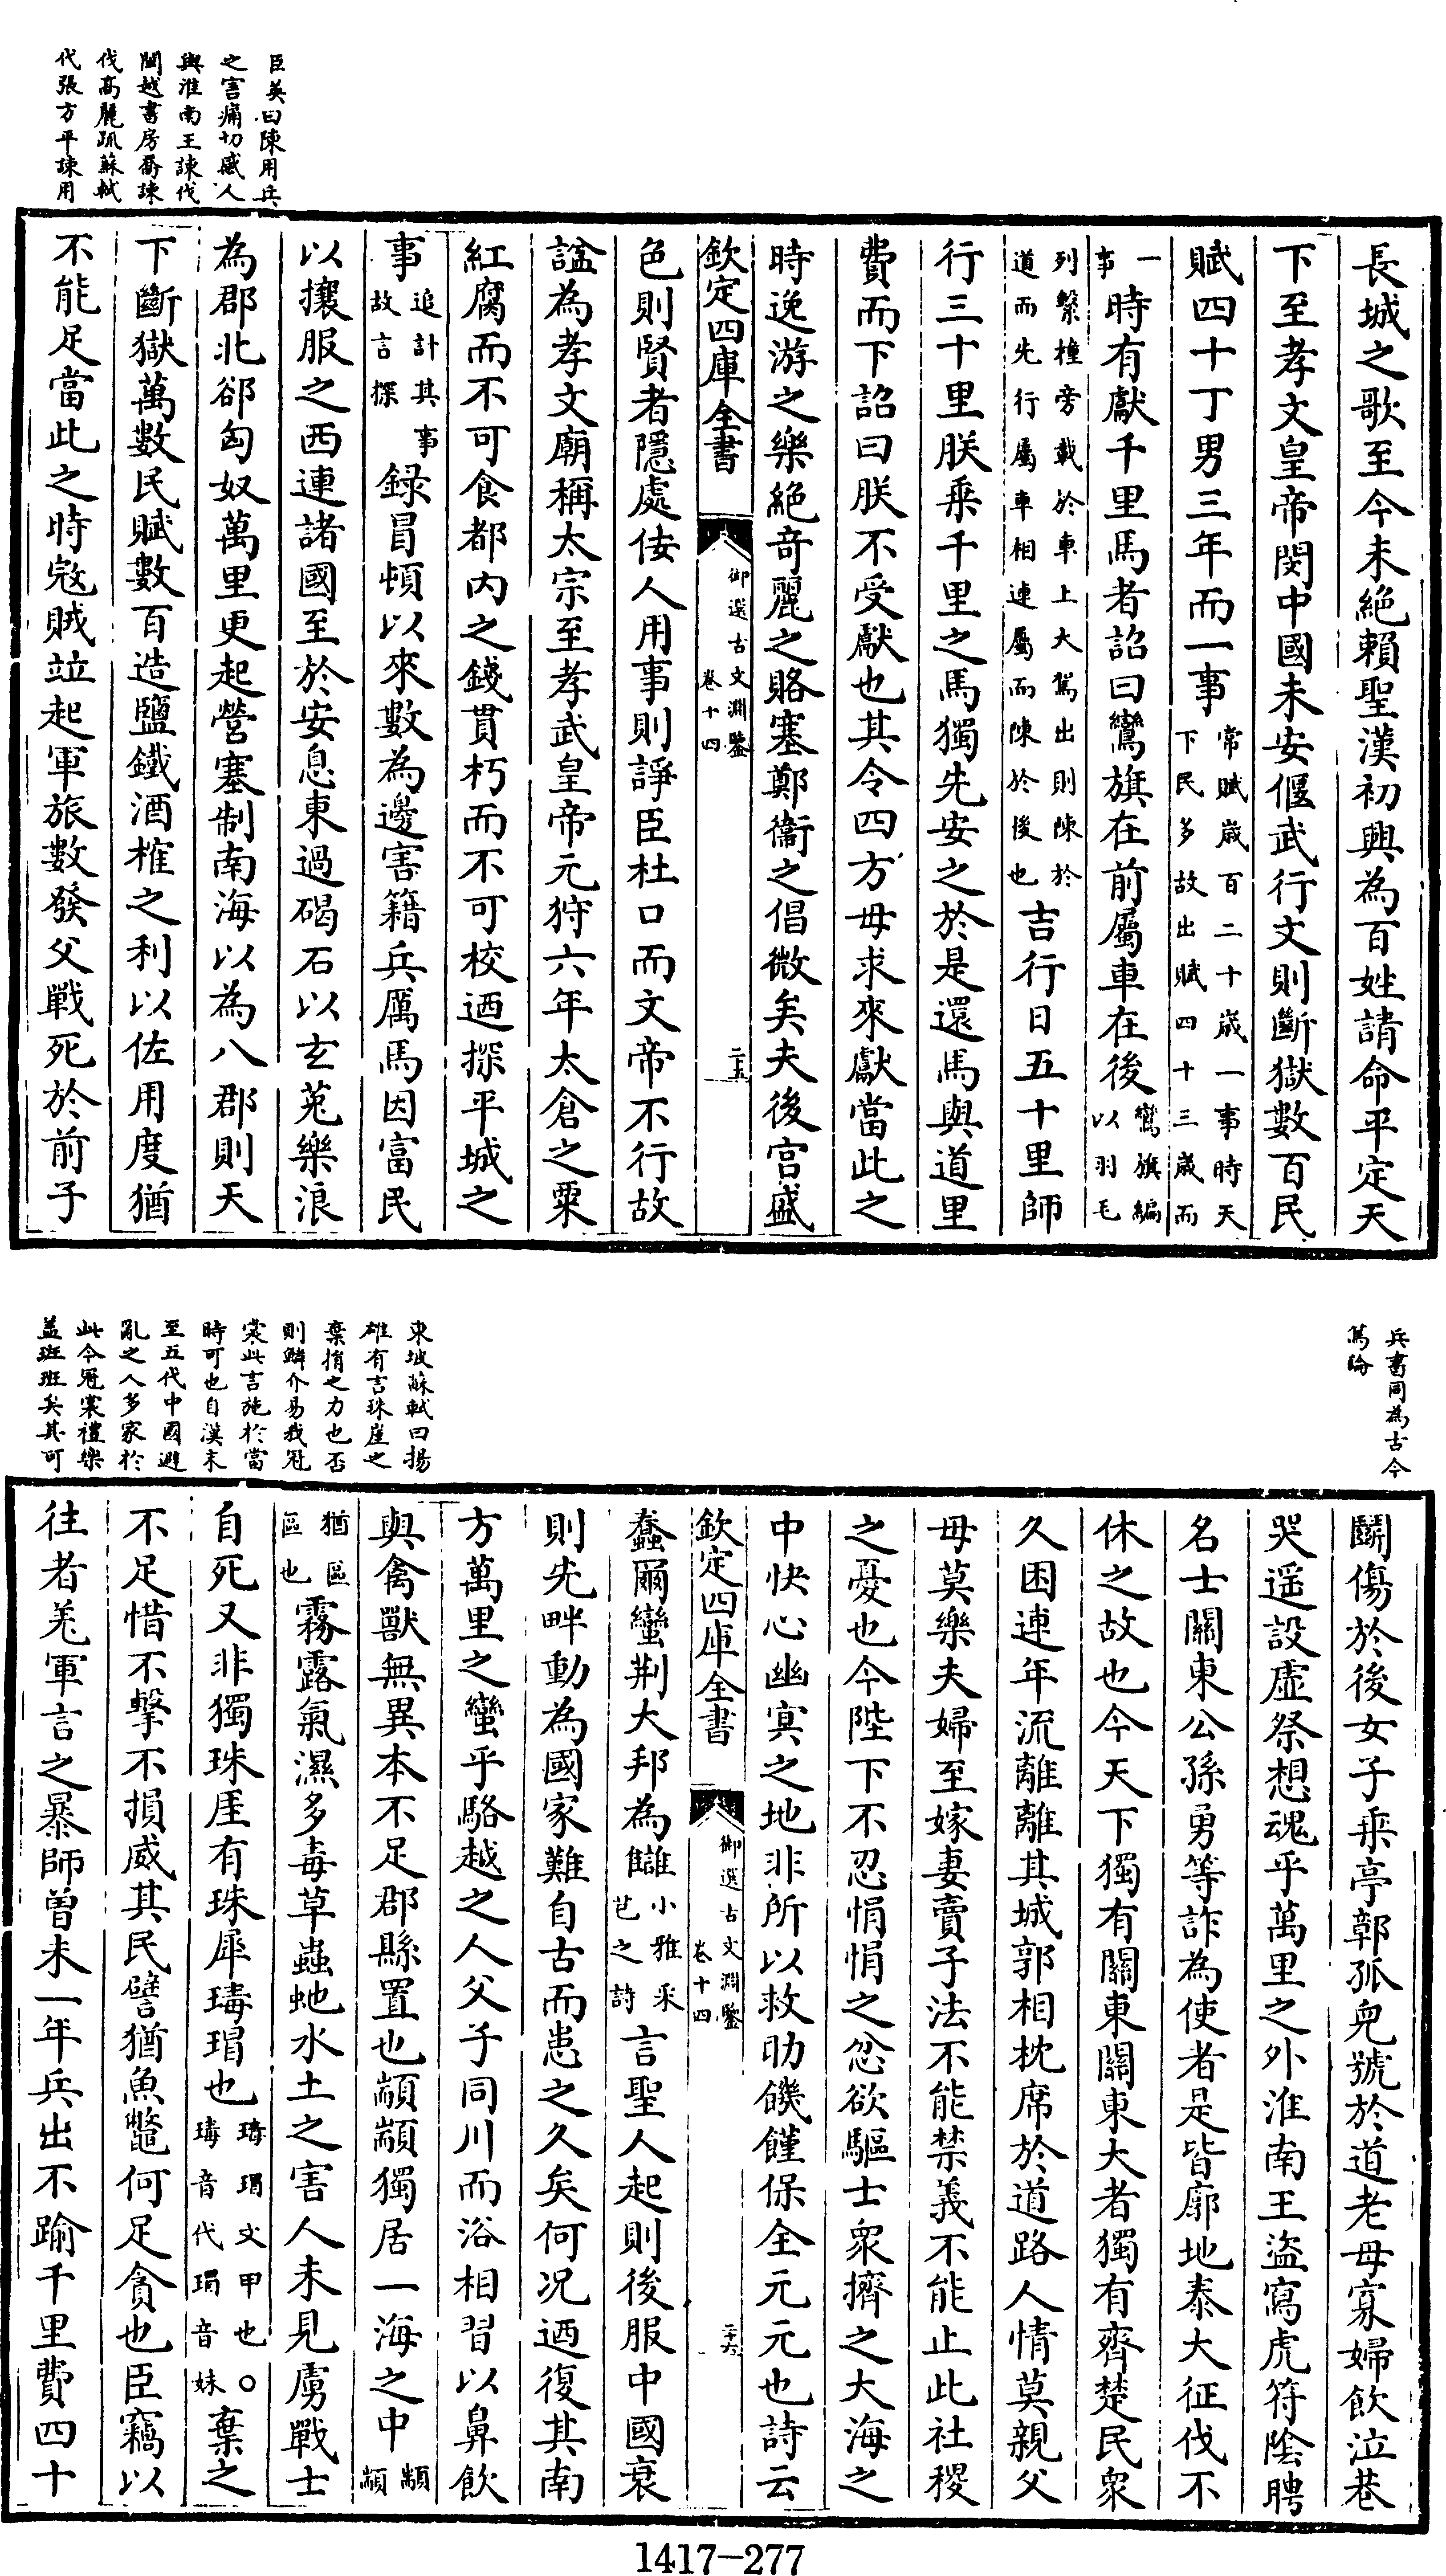 臣英曰陳用兵
之害痛切感人
與淮南王諫伐
閩越書房喬諫
伐高麗疏蘇軾
代張方平諫用
長城之歌至今未絶賴聖漢初興為百姓請命平定天
下至孝文皇帝閔中國未安偃武行文則斷獄數百民
賦四十丁男三年而一事常賦歲百二十歲一事時天下民多故出賦四十三歲而
一事時有獻千里馬者詔曰鸞旗在前屬車在後鸞旗編以羽毛
列繫橦旁載於車上大駕出則陳於道而先行屬車相連屬而陳於後也吉行日五十里師
行三十里朕乘千里之馬獨先安之於是還馬與道里
費而下詔曰朕不受獻也其令四方毋求來獻當此之
時逸游之樂絶奇麗之賂塞鄭衞之倡微矣夫後宮盛
欽定四庫全書
御選古文淵鑒
卷十四
二十五
色則賢者隱處佞人用事則諍臣杜口而文帝不行故
謚為孝文廟稱太宗至孝武皇帝元狩六年太倉之粟
紅腐而不可食都内之錢貫朽而不可校迺探平城之
事追計其事故言探録冒頓以來數為邊害籍兵厲馬因富民
以攘服之西連諸國至於安息東過碣石以玄菟樂浪
為郡北郤匈奴萬里更起營塞制南海以為八郡則天
下斷獄萬數民賦數百造鹽鐵酒榷之利以佐用度猶
不能足當此之時宼賊竝起軍旅數發父戰死於前子
兵書同為古今
篤論
鬭傷於後女子乘亭鄣孤兒號於道老母寡婦飲泣巷
哭遥設虛祭想魂乎萬里之外淮南王盜寫虎符陰聘
名士關東公孫勇等詐為使者是皆廓地泰大征伐不
休之故也今天下獨有關東關東大者獨有齊楚民衆
久困連年流離離其城郭相枕席於道路人情莫親父
母莫樂夫婦至嫁妻賣子法不能禁義不能止此社稷
之憂也今陛下不忍悁悁之忿欲驅士衆擠之大海之
中快心幽冥之地非所以救助饑饉保全元元也詩云
欽定四庫全書
御選古文淵鑒
卷十四
二十六
蠢爾蠻荆大邦為讎小雅采芑之詩言聖人起則後服中國衰
則先畔動為國家難自古而患之久矣何况迺復其南
方萬里之蠻乎駱越之人父子同川而浴相習以鼻飲
與禽獸無異本不足郡縣置也顓顓獨居一海之中顓顓
猶區區也霧露氣濕多毒草蟲虵水土之害人未見虜戰士
自死又非獨珠厓有珠犀瑇瑁也瑇瑁文甲也○瑇音代瑁音妹棄之
不足惜不擊不損威其民譬猶魚鼈何足貪也臣竊以
往者羌軍言之暴師曽未一年兵出不踰千里費四十
東坡蘇軾曰揚
雄有言珠崖之
棄捐之力也否
則鱗介易我冠
裳此言施於當
時可也自漢末
至五代中國避
亂之人多家於
此今冠裳禮樂
盖班班矣其可
1417-277